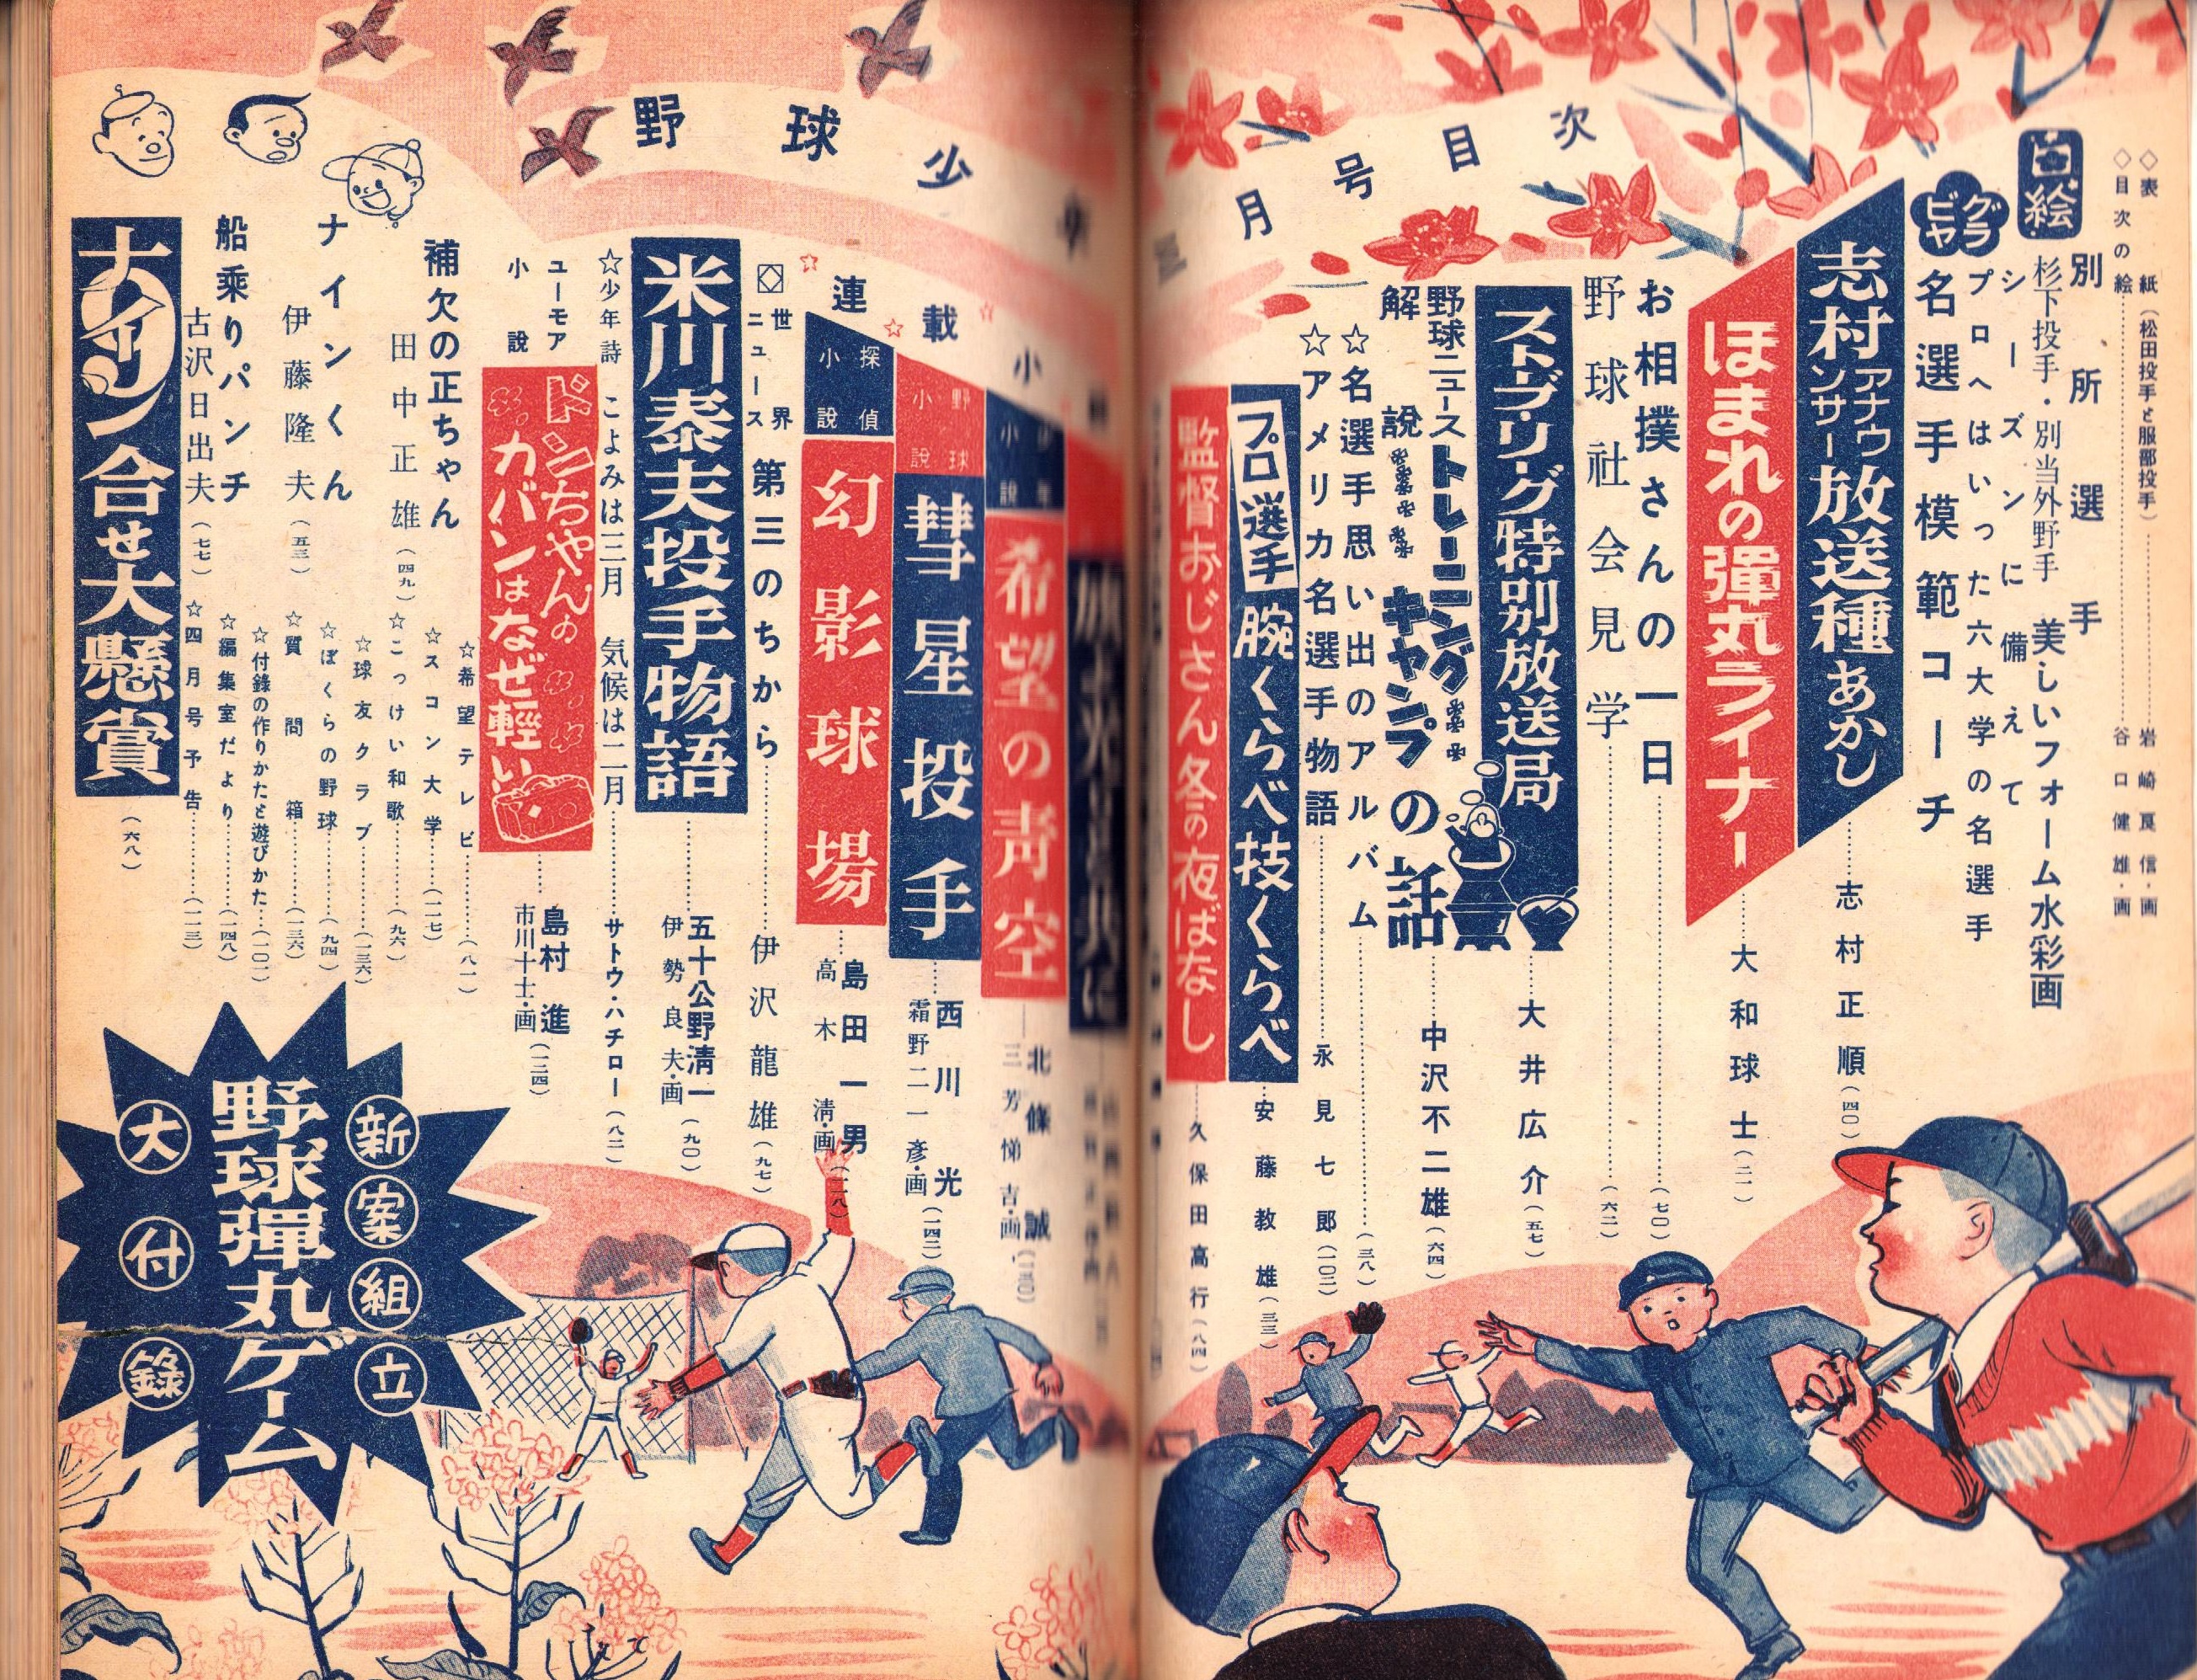 野球少年
月号目次
◇表紙（松田投手と服部投手）……岩崎良信・画
◇目次の絵……谷口健雄・画
口絵
別所選手
杉下投手・別当外野手 美しいフォーム水彩画
グラビヤ
シーズンに備えて
プロへはいった六大学の名選手
名選手模範コーチ
志村アナウンサー放送種あかし……志村正順（四〇）
ほまれの彈丸ライナー……大和球士（二一）
お相撲さんの一日……（七〇）
野球社会見学……（六二）
ストヴ・リーグ特別放送局……大井広介（五七）
野球ニュース解説
トレーニングキャンプの話……中沢不二雄（六四）
☆名選手思い出のアルバム……（三八）
☆アメリカ名選手物語……永見七郎（一〇二）
プロ選手腕くらべ技くらべ……安藤教雄（三三）
監督おじさん冬の夜ばなし……久保田高行（八四）
☆連載☆小
希望の青空……北條誠（一三〇）
三芳悌吉・画
野球小説
彗星投手……西川光（一四二）
霜野二一彦・画
探偵小説
幻影球場……島田一男（一一八）
高木清・画
世界ニュース 第三のちから……伊沢龍雄（九七）
米川泰夫投手物語……五十公野清一（九〇）
伊勢良夫・画
☆少年詩 こよみは三月 気候は二月……サトウ・ハチロー（八二）
ユーモア小説
ドンちゃんのカバンはなぜ輕い……島村進
市川十士・画（二四）
補欠の正ちゃん
田中正雄（四九）
ナインくん
伊藤隆夫（五三）
船乗りパンチ
古沢日出夫（七七）
☆希望テレビ……（八一）
☆スコン大学……（一二七）
☆こっけい和歌……（九六）
☆球友クラブ……（一三六）
☆ぼくらの野球……（九四）
☆質問箱……（一三六）
☆付錄の作りかたと遊びかた…（一〇一）
☆編集室だより……（一四八）
☆四月号予告……（一一三）
ナイン合せ大懸賞（六八）
新案組立
野球彈丸ゲーム
大付錄